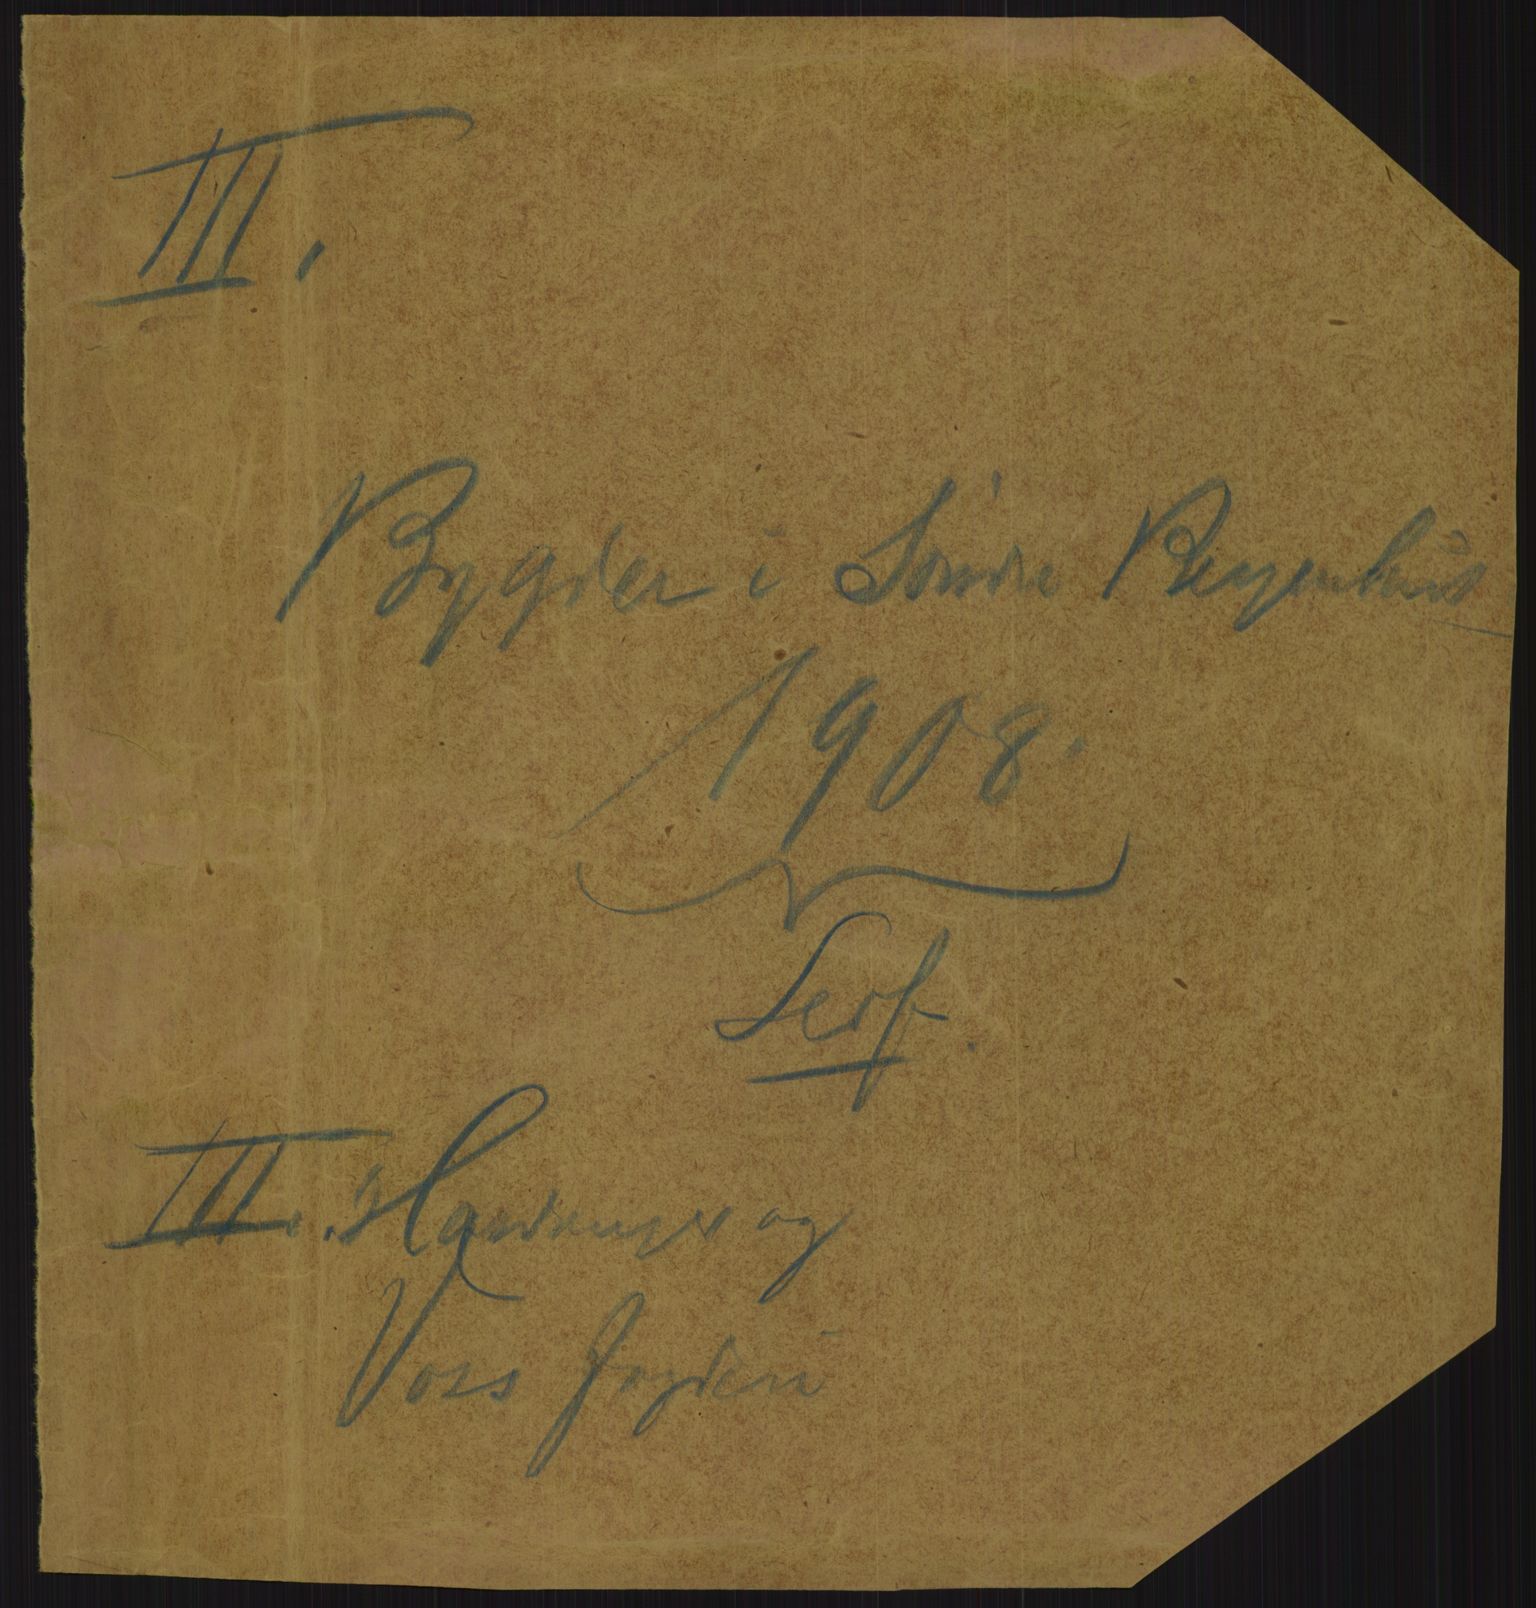 III.
Bygder i Søndre Bergenhus
1908.
III. Hardanger og
Voss Fogderi